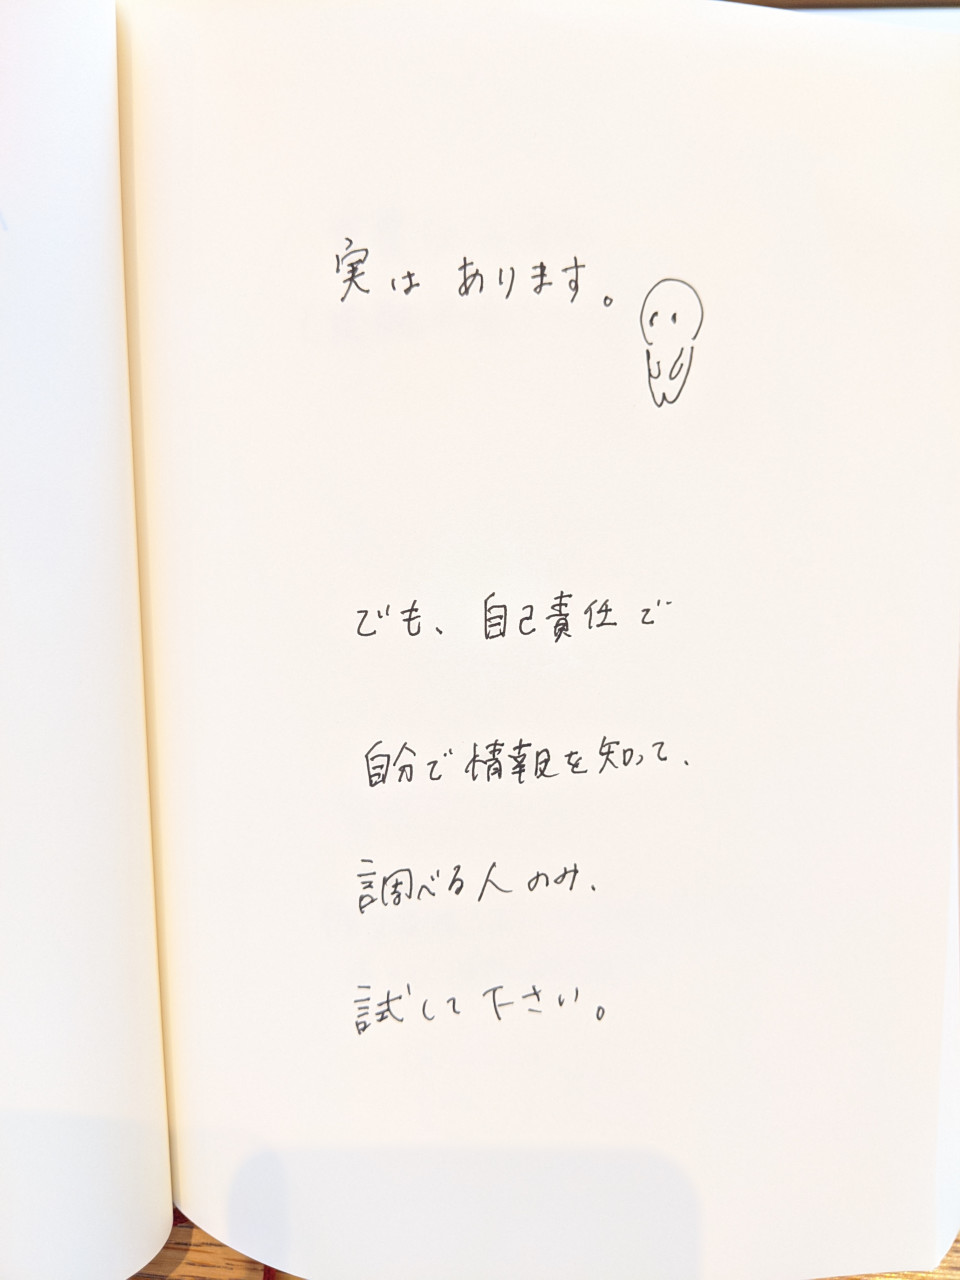 実は あります。
でも、自己責任で
自分で情報を知って、
調べる人のみ、
試して下さい。